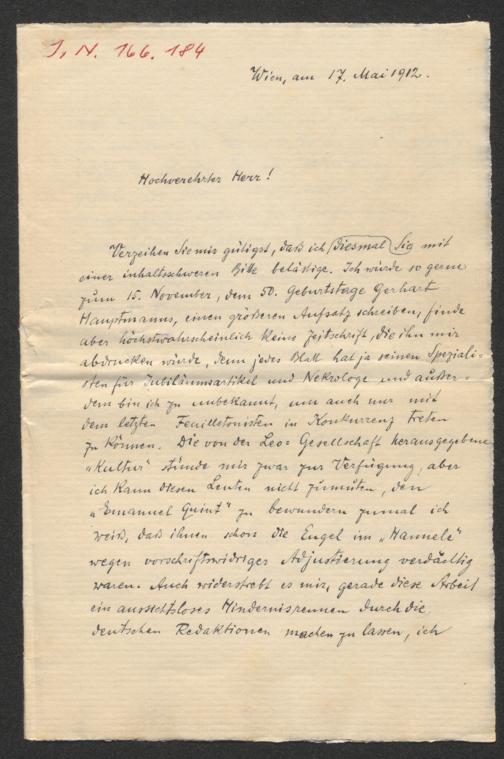 I. N. 166.184
Wien, am 17. Mai 1912.
Hochverehrter Herr!
Verzeihen Sie mir gütigst, daß ich diesmal Sie mit
einer inhaltsschweren Bitte belästige. Ich würde so gerne
zum 15. November, dem 50. Geburtstage Gerhart
Hauptmanns, einen größeren Aufsatz schreiben, finde
aber höchstwahrscheinlich keine Zeitschrift, die ihn mir
abdrucken würde, denn jedes Blatt hat ja seinen Speziali-
sten für Jubiläumsartikel und Nekrologe und außer-
dem bin ich zu unbekannt, um auch nur mit
dem letzten Feuilletonisten in Konkurrenz treten
zu können. Die von der Leo-Gesellschaft herausgegebene
"Kultur" stünde mir zwar zur Verfügung, aber
ich kann diesen Leuten nicht zumuten, den
"Emanuel Quint" zu bewundern zumal ich
weiß, daß ihnen schon die Engel im "Hannele"
wegen vorschriftswidriger Adjustierung verdächtig
waren. Auch widerstrebt es mir, gerade diese Arbeit
ein aussichtsloses Hindernisrennen durch die
deutschen Redaktionen machen zu lassen, ich